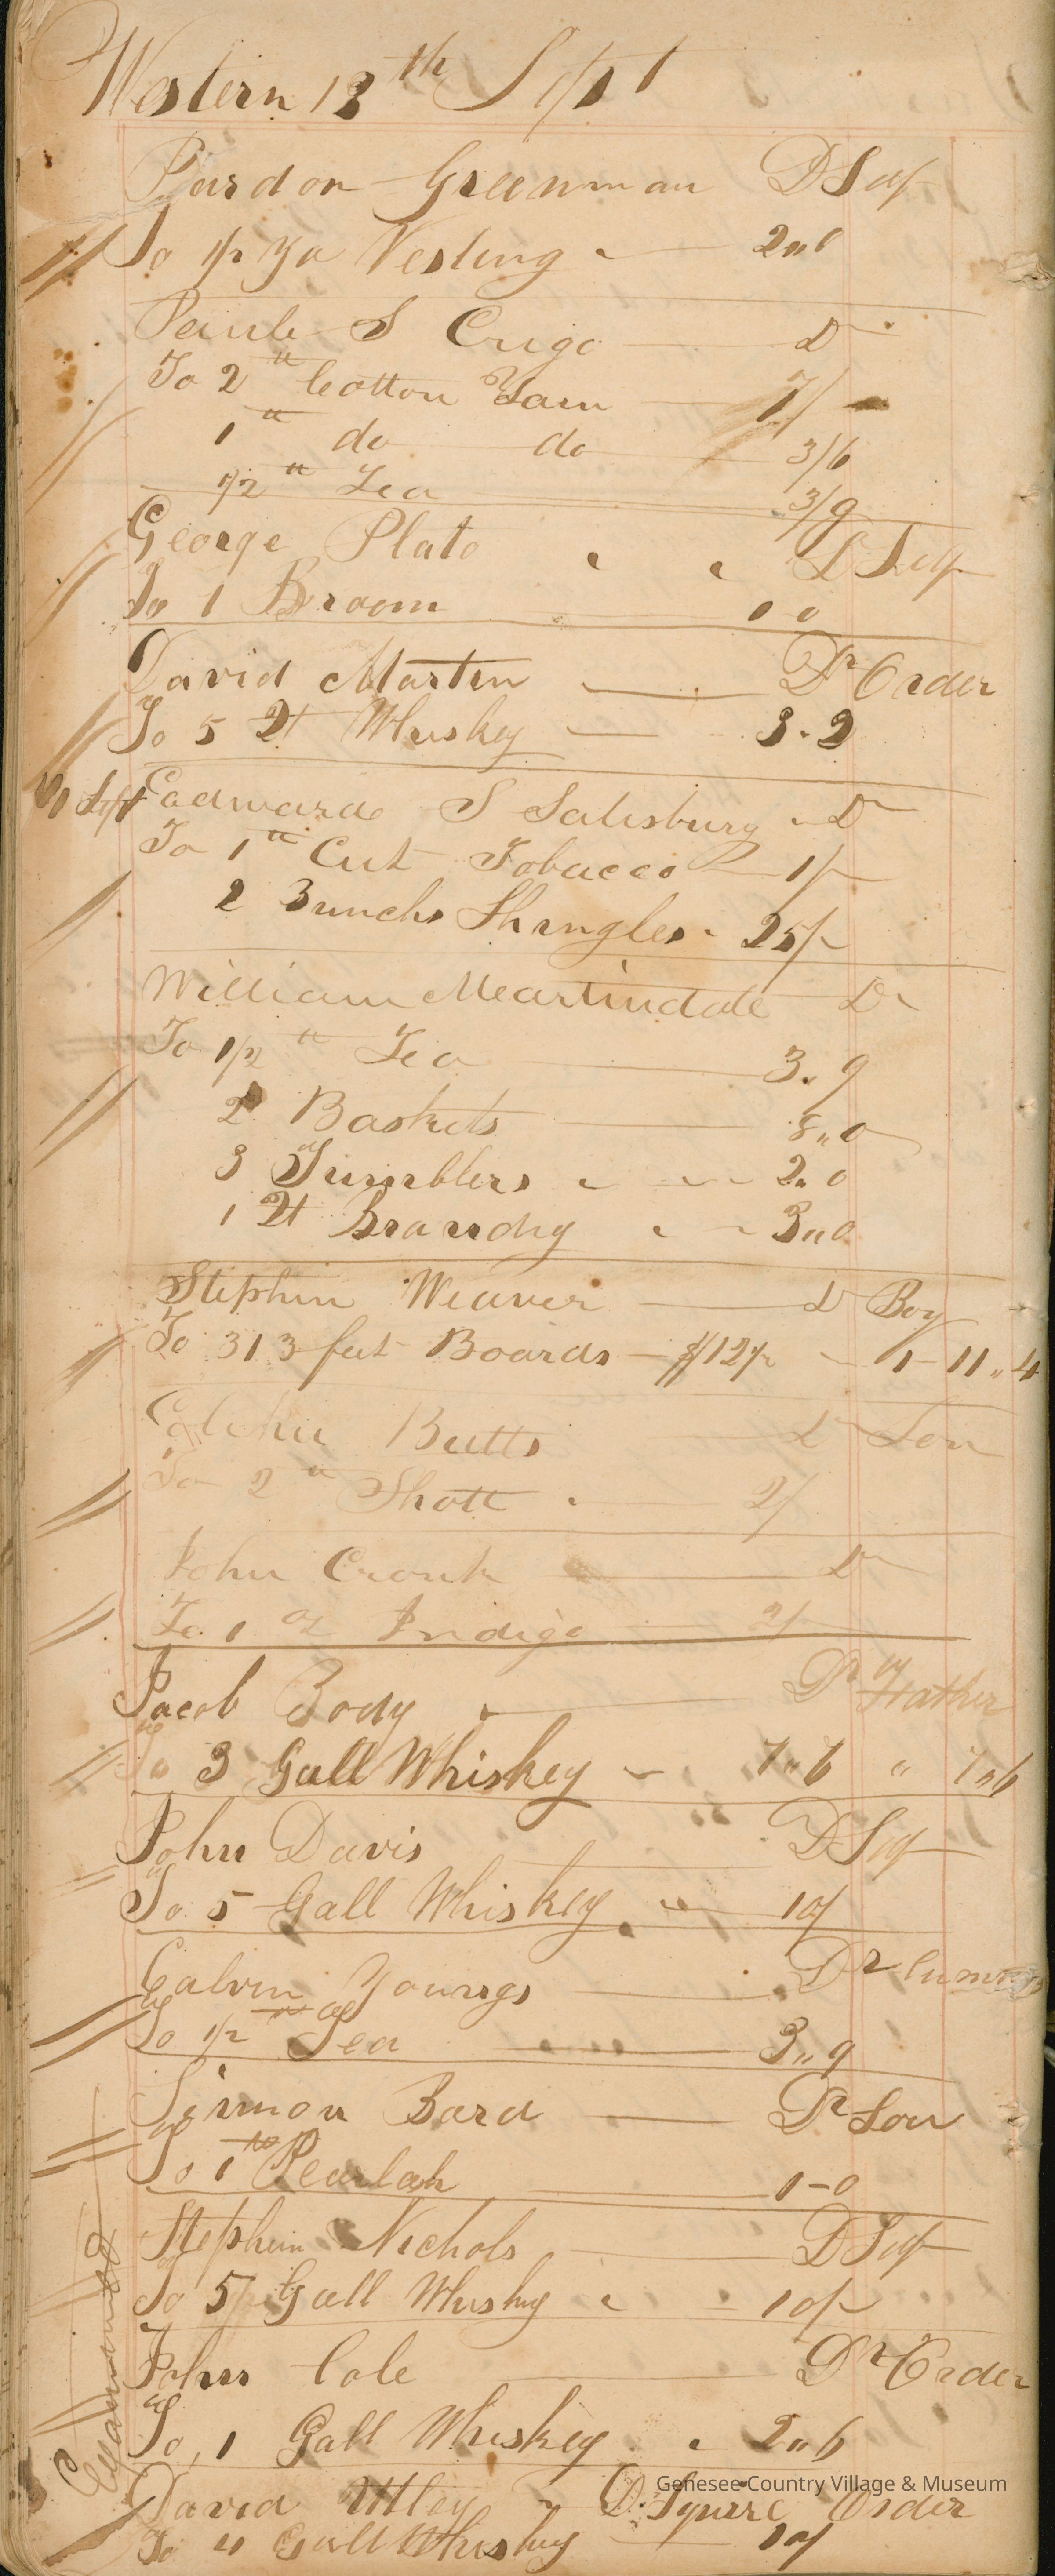 Western 13th Sept
Pardon Greenman D Self
To 1/2 Yd Vesting 2"6
Paul S Crigo D
To 2 " Cotton Yarn 7/
1 " do do 3/6
1/2 " Tea 3/9
George Plato D Self
To 1 Broom 1 0
David Marten Dr Order
To 5 Qt Whiskey 3.2
Sept Eadward S Salisbury D
To 1 " Cut Tobacco 1/
2 Bunchs Shingles 25/
William Meartindale D
To 1/2 " Tea 3.9
2 Baskets 8"0
3 Tumblers 2.0
1 Qt Brandy 3"0
Stephen Weaver D Boy
To 313 feet Boards $12/ 1-11"4
Butts D Son
To 2 " Shott 2/
John Cronk D
To 1 oz Indigo 2/
Jacob Body Dr Father
To 3 Gall Whiskey 7"6 " 7"6
John Davis D Self
To 5 Gall Whiskey 10/
Calvin Youngs Dr
To 1/2 " Tea 3"9
Simon Bard Dr Son
To 1 Pearlash 1-0
Stephen Nichols D Self
To 5 Gall Whiskey 10/
John Cole Dr Order
To 1 Gall Whiskey 2"6
David Utley D. Squire Order
To 4 Gall Whiskey 10/
Examined
Genesee Country Village & Museum